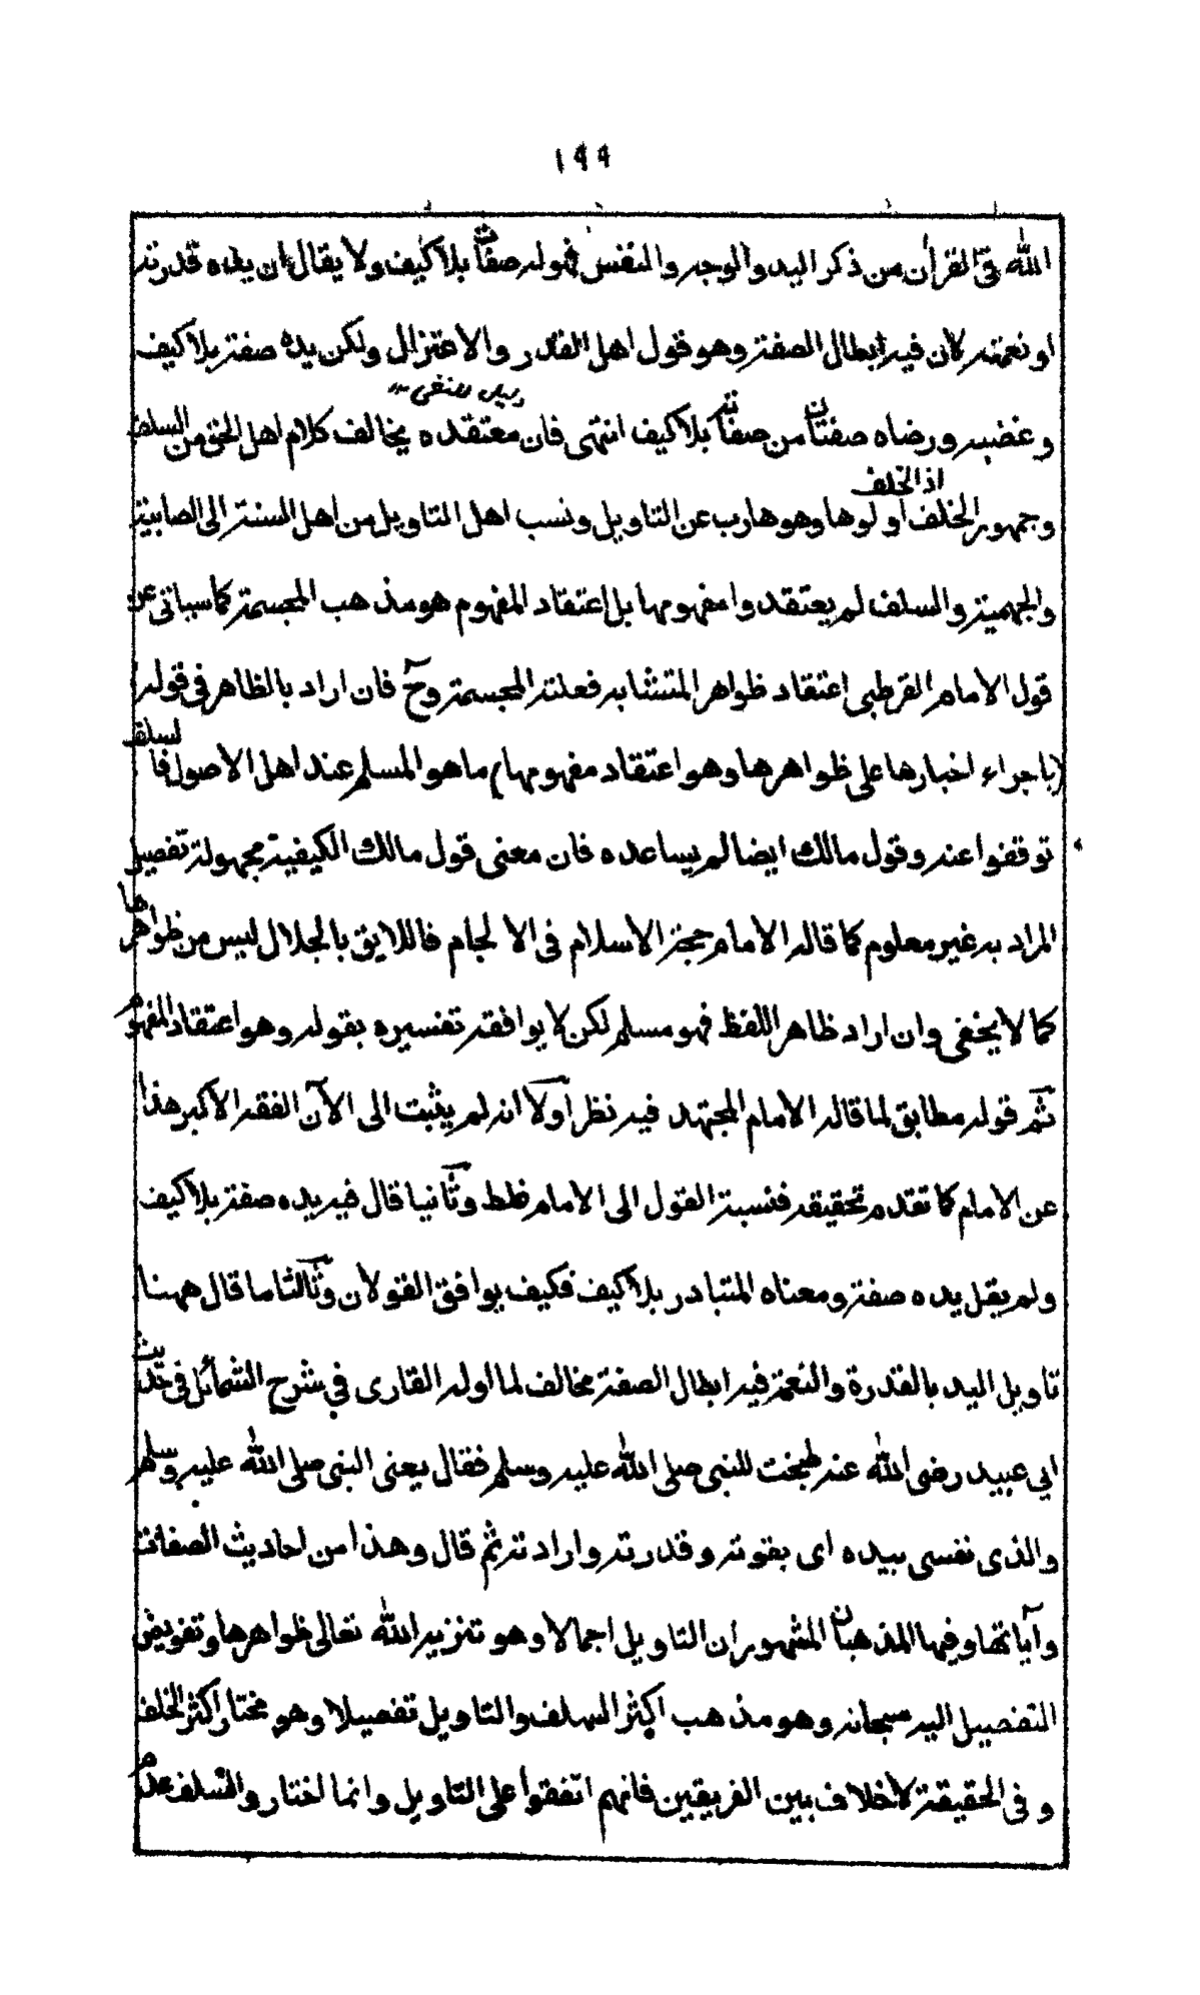 ١٩٩
الله فى القرأن من ذكر اليد والوجه والنفس فهو له صفات بلا كيف ولا يقال ان يده قدرته
او نعمته لان فيه ابطال الصفة وهو قول اهل القدر والاعتزال ولكن يده صفة بلا كيف
وغضبه ورضاه صفتان من صفاته بلا كيف انتهى فان معتقده يخالف كلام اهل الحق من السلف
وجمهور الخلف اذ الخلف اولوها وهو هارب عن التاويل ونسب اهل التاويل من اهل السنة الى الصابية
والجهمية والسلف لم يعتقدوا مفهومها بل اعتقاد المفهوم هو مذهب المجسمة كما سياتى عن
قول الامام القرطبى اعتقاد ظواهر المتشابه فعلته المجسمة وح فان اراد بالظاهر فى قوله
(باجراء اخبارها على ظواهرها وهو اعتقاد مفهومها) ما هو المسلم عند اهل الاصول فالسلف
توقفوا عنه وقول مالك ايضا لم يساعده فان معنى قول مالك الكيفية مجهولة تفصيل
المراد به غير معلوم كما قاله الامام حجة الاسلام فى الالجام فاللايق بالجلال ليس من ظواهرها
كما لا يخفى وان اراد ظاهر اللفظ فهو مسلم لكن لا يوافقه تفسيره بقوله وهو اعتقاد المفهوم
ثم قوله مطابق لما قاله الامام المجتهد فيه نظر اولا انه لم يثبت الى الآن الفقه الاكبر هذا
عن الامام كما تقدم تحقيقه فنسبة القول الى الامام غلط وثانيا قال فيه يده صفة بلا كيف
ولم يقل يده صفة ومعناه المتبادر بلا كيف فكيف يوافق القولان وثالثا ما قال ههنا
تاويل اليد بالقدرة والنعمة فيه ابطال الصفة مخالف لما اوله القارى في شرح الشمائل فى حديث
ابى عبيد رضى الله عنه طبخت للنبى صلى الله عليه وسلم فقال يعنى النبى صلى الله عليه وسلم
والذى نفسى بيده اى بقوته وقدرته وارادته ثم قال وهذا من احاديث الصفات
وآياتها وفيها المذهبان المشهوران التاويل اجمالا وهو تنزيه الله تعالى ظواهرها وتفويض
التفصيل اليه سبحانه وهو مذهب اكثر السلف والتاويل تفصيلا وهو مختار اكثر الخلف
وفى الحقيقة لاخلاف بين الفريقين فانهم اتفقوا على التاويل وانما اختار والسلف عدم